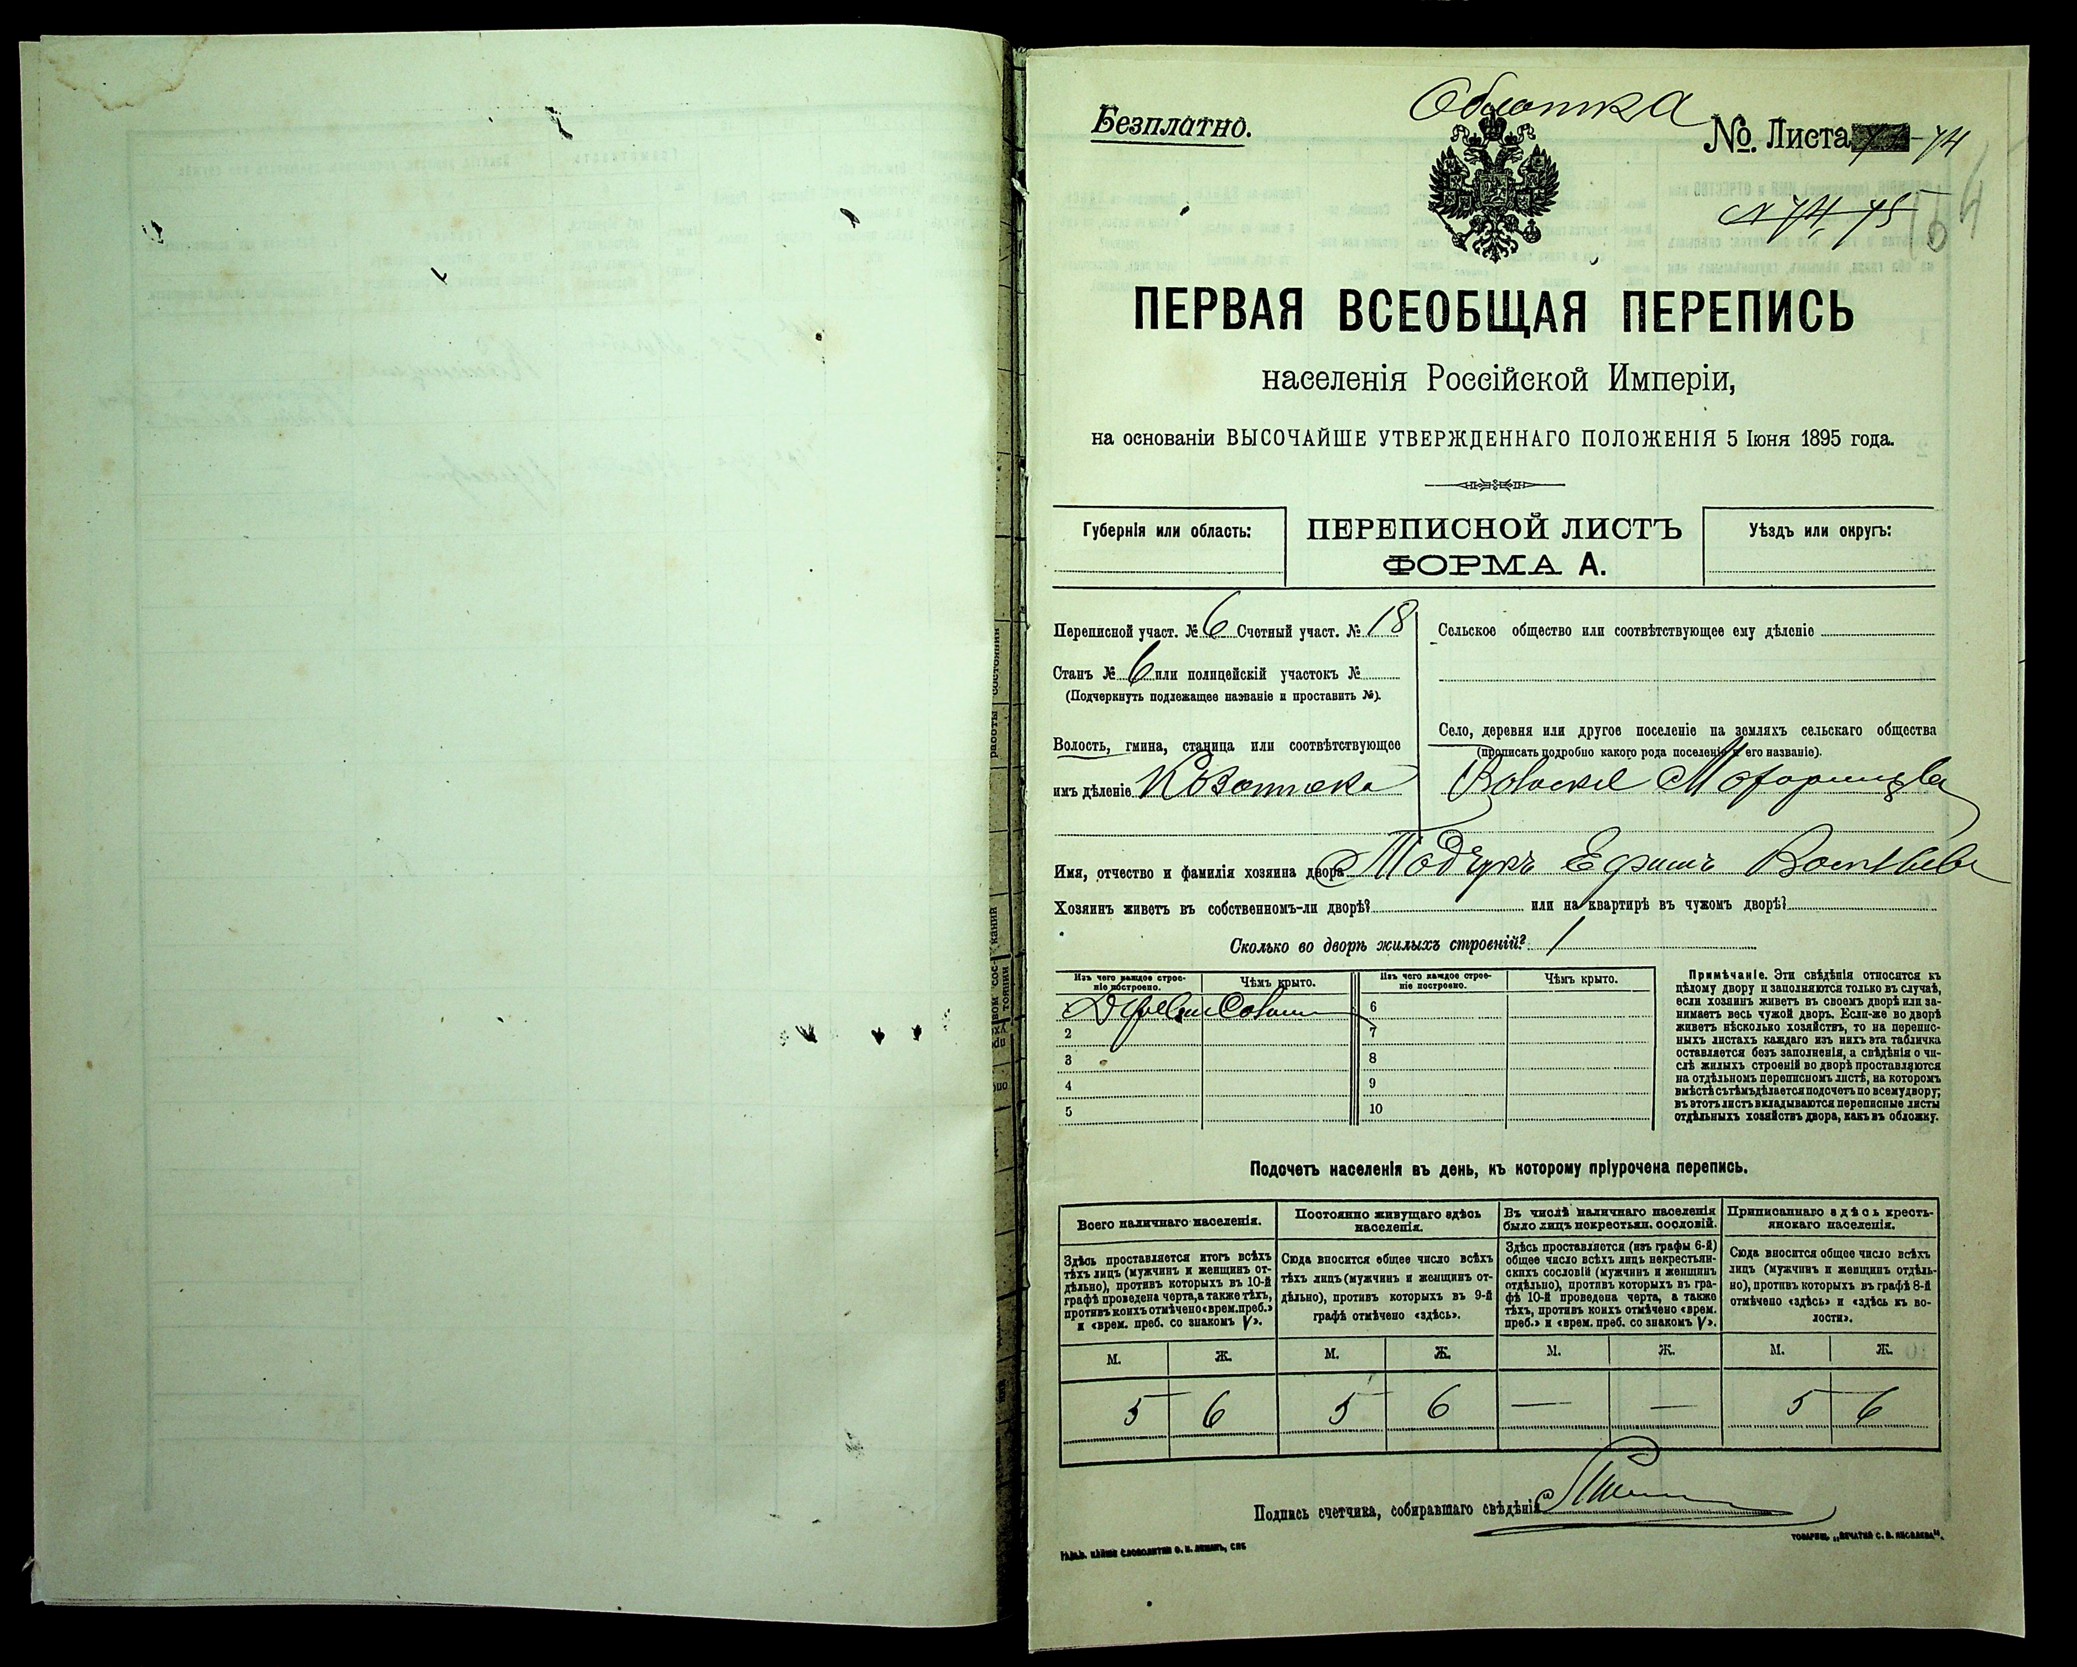 Обложка
Безплатно.
№. Листа 74
N 74, 75
164
ПЕРВАЯ ВСЕОБЩАЯ ПЕРЕПИСЬ
населенія Россійской Имперіи,
на основаніи ВЫСОЧАЙШЕ УТВЕРЖДЕННАГО ПОЛОЖЕНІЯ 5 Іюня 1895 года.
Губернія или область:
ПЕРЕПИСНОЙ ЛИСТЪ
ФОРМА А.
Уѣздъ или округъ:
Переписной участ. № 6 Счетный участ. № 18
Станъ № 6 или полицейскій участокъ №
(Подчеркнуть подлежащее названіе и проставить №).
Волость, гмина, станица или соотвѣтствующее
имъ дѣленіе
Сельское общество или соотвѣтствующее ему дѣленіе
Село, деревня или другое поселеніе на земляхъ сельскаго общества
(прописать подробно какого рода поселеніе и его названіе).
Имя, отчество и фамилія хозяина двора Ефимъ
Хозяинъ живетъ въ собственномъ-ли дворѣ? или на квартирѣ въ чужомъ дворѣ?
Сколько во дворѣ жилыхъ строеній? 1
Изъ чего каждое строе-
ніе построено.
Чѣмъ крыто.
Изъ чего каждое строе-
ніе построено.
Чѣмъ крыто.
6
2
7
3
8
4
9
5
10
Примѣчаніе. Эти свѣдѣнія относятся къ
цѣлому двору и заполняются только въ случаѣ,
если хозяинъ живетъ въ своемъ дворѣ или за-
нимаетъ весь чужой дворъ. Если-же во дворѣ
живетъ нѣсколько хозяйствъ, то на перепис-
ныхъ листахъ каждаго изъ нихъ эта табличка
оставляется безъ заполненія, а свѣдѣнія о чи-
слѣ жилыхъ строеній во дворѣ проставляются
на отдѣльномъ переписномъ листѣ, на которомъ
вмѣстѣ съ тѣмъ дѣлается подсчетъ по всему двору;
въ этотъ листъ вкладываются переписные листы
отдѣльныхъ хозяйствъ двора, какъ въ обложку.
Подочетъ населенія въ день, къ которому пріурочена перепись.
Всего наличнаго населенія.
Постоянно живущаго здѣсь
населенія.
Въ числѣ наличнаго населенія
было лицъ некрестьян. сословій.
Приписаннаго здѣсь кресть-
янскаго населенія.
Здѣсь проставляется итогъ всѣхъ
тѣхъ лицъ (мужчинъ и женщинъ от-
дѣльно), противъ которыхъ въ 10-й
графѣ проведена черта, а также тѣхъ,
противъ коихъ отмѣчено «врем. преб.»
и «врем. преб. со знакомъ V».
Сюда вносится общее число всѣхъ
тѣхъ лицъ (мужчинъ и женщинъ от-
дѣльно), противъ которыхъ въ 9-й
графѣ отмѣчено «здѣсь».
Здѣсь проставляется (изъ графы 6-й)
общее число всѣхъ лицъ некрестьян-
скихъ сословій (мужчинъ и женщинъ
отдѣльно), противъ которыхъ въ гра-
фѣ 10-й проведена черта, а также
тѣхъ, противъ коихъ отмѣчено «врем.
преб.» и «врем. преб. со знакомъ V».
Сюда вносится общее число всѣхъ
лицъ (мужчинъ и женщинъ отдѣль-
но), противъ которыхъ въ графѣ 8-й
отмѣчено «здѣсь» и «здѣсь къ во-
лости».
М. Ж. М. Ж. М. Ж. М. Ж.
5 6 5 6 — — 5 6
Подпись счетчика, собиравшаго свѣдѣнія